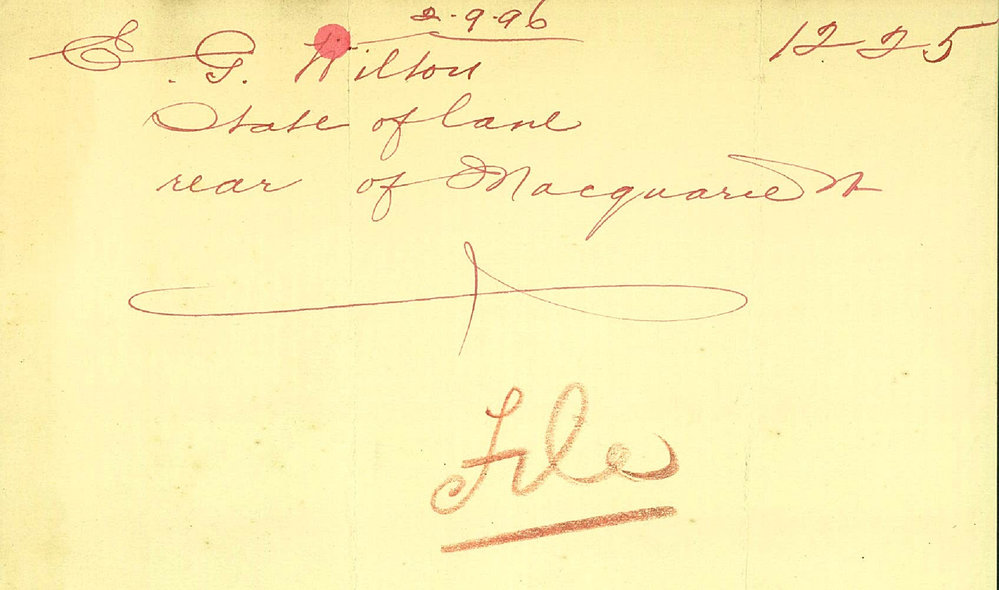 2-9-96
E. G. Wilton 1225
State of lane
rear of Macquarie St
File